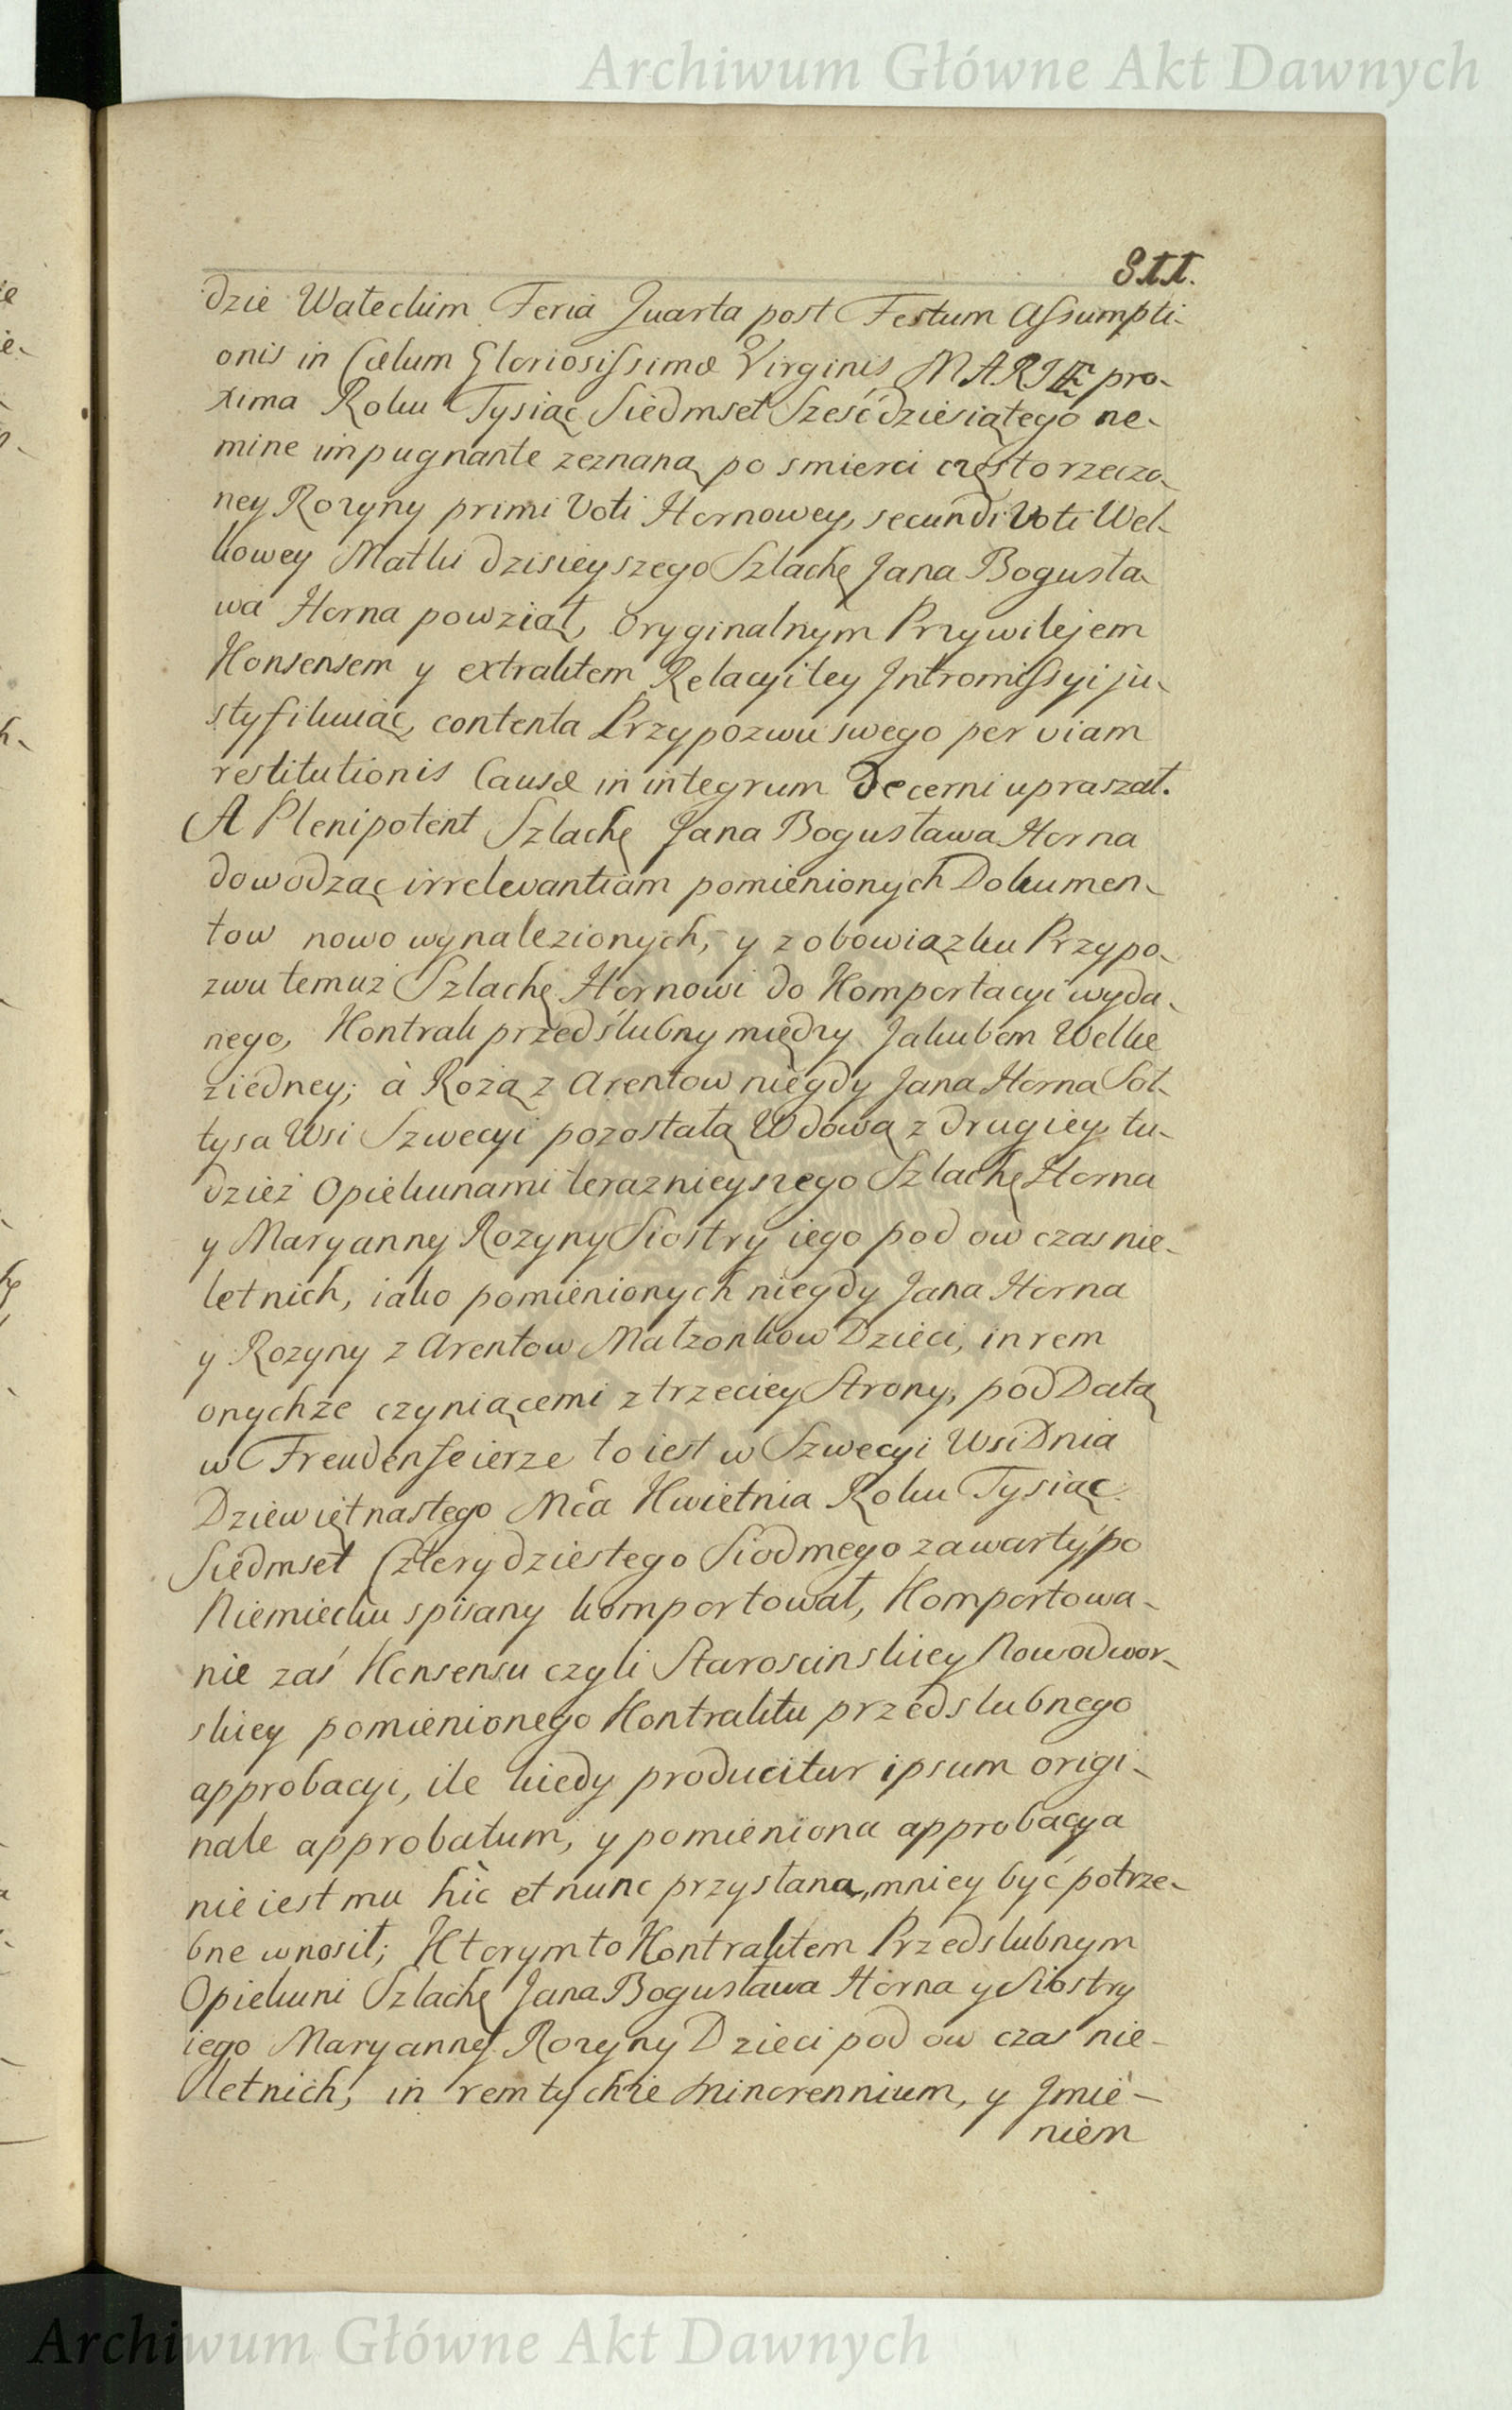 Archiwum Główne Akt Dawnych
811.
dzie Wałeckim Feria Quarta post Festum Assumpti-
onis in Cælum Gloriosissimæ Virginis MARIÆ pro-
xima Roku Tysiąc Siedmset Sześćdziesiątego ne-
mine impugnante zeznaną po smierci często rzeczo-
ney Rozyny primi Voti Hornowey, secundi Voti Wel-
kowey Matki dzisieyszego Szlachę Jana Bogusła-
wa Horna powziął, Oryginalnym Przywilejem
Konsensem y extraktem Relacyi tey Intromissyi ju-
styfikuiąc, contenta Przypozwu swego per viam
restitutionis Causæ in integrum Decerni upraszał.
A Plenipotent Szlachę Jana Bogusława Horna
dowodząc irrelevantiam pomienionych Dokumen-
tow nowo wynalezionych, y z obowiązku Przypo-
zwu temuż Szlachę Hornowi do Komportacyi wyda-
nego, Kontrakt przedślubny między Jakubem Welke
z iedney; à Rozą z Arentow niegdy Jana Horna Soł-
tysa Wsi Szwecyi pozostałą Wdową z drugiey, tu-
dzież Opiekunami teraznieyszego Szlachę Horna
y Maryanny Rozyny Siostry iego pod ow czas nie-
letnich, iako pomienionych niegdy Jana Horna
y Rozyny z Arentow Małzonkow Dzieci, in rem
onychże czyniącemi z trzeciey Strony, pod Datą
w Freudenfeierze to iest w Szwecyi Wsi Dnia
Dziewiętnastego Mca Kwietnia Roku Tysiąc
Siedmset Czterydziestego Siodmego zawarty po
Niemiecku spisany komportował, Komportowa-
nie zaś Konsensu czyli Staroscinskiey Nowodwor-
skiey pomienionego Kontraktu przedslubnego
approbacyi, ile kiedy producitur ipsum origi-
nale approbatum, y pomieniona approbacya
nie iest mu hic et nunc przysłana, mniey być potrze-
bne wnosił; Ktorym to Kontraktem Przedslubnym
Opiekuni Szlachę Jana Bogusława Horna y Siostry
iego Maryanny Rozyny Dzieci pod ow czas nie-
letnich, in rem tychże Minorennium, y Jmie-
niem
Archiwum Główne Akt Dawnych